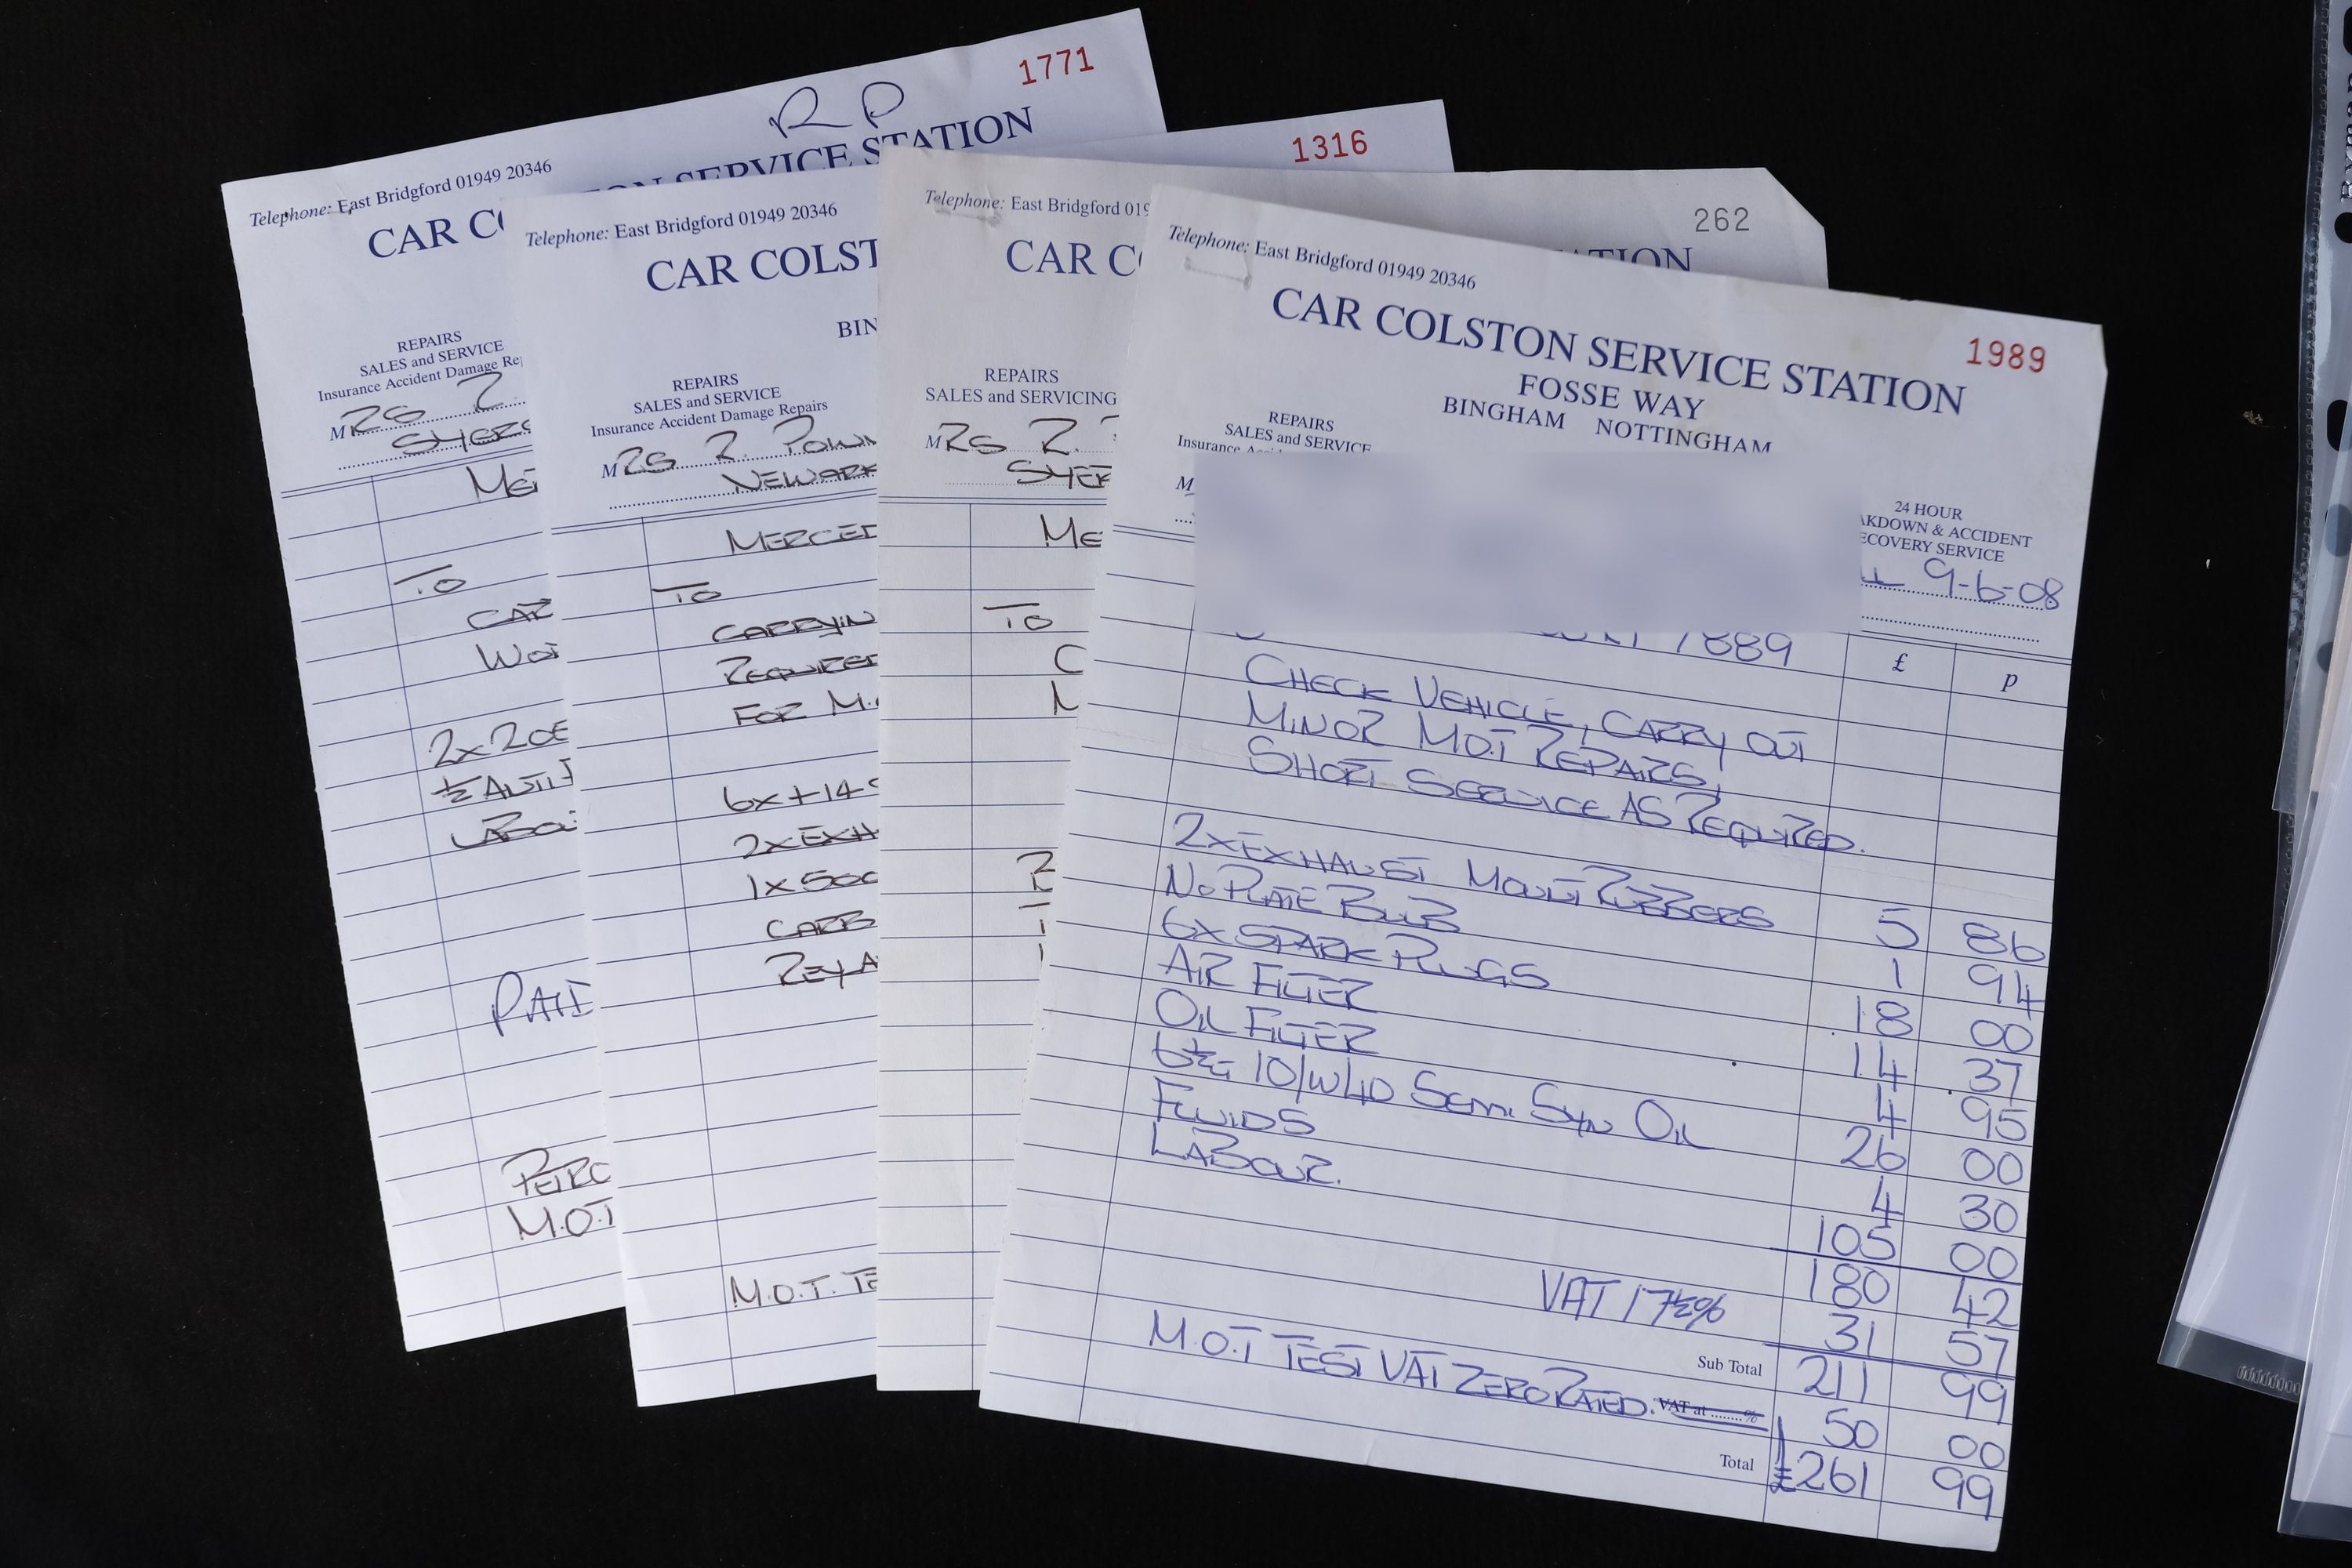 1771
R P
Telephone: East Bridgford 01949 20346
CAR CO
ON SERVICE STATION
REPAIRS
SALES and SERVICE
Insurance Accident Damage Rep
MRS R.
SYERS
ME
To
CAR
WOR
2x20E
½ ANTI F
LABOU
PAI
PETRO
M.O.T
1316
Telephone: East Bridgford 01949 20346
CAR COLST
BIN
REPAIRS
SALES and SERVICE
Insurance Accident Damage Repairs
MRS R. POWN
NEWARK
MERCED
To
CARRYIN
REQUIRED
FOR M.
6x+14
2xEXH
1x500
CARB
REPA
M.O.T. TE
262
Telephone: East Bridgford 019
CAR CO
ATION
REPAIRS
SALES and SERVICING
MRS R.
SYER
ME
To
C
M
1989
Telephone: East Bridgford 01949 20346
CAR COLSTON SERVICE STATION
FOSSE WAY
BINGHAM NOTTINGHAM
REPAIRS
SALES and SERVICE
Insurance Acci
24 HOUR
AKDOWN & ACCIDENT
ECOVERY SERVICE
M
9-6-08
7889
£ p
CHECK VEHICLE, CARRY OUT
MINOR M.O.T REPAIRS,
SHORT SERVICE AS REQUIRED.
2xEXHAUST MOUNT RUBBERS 5 86
NO PLATE BULB 1 94
6x SPARK PLUGS 18 00
AIR FILTER 14 37
OIL FILTER 4 95
6½L 10/W40 SEMI SYN OIL 26 00
FLUIDS 4 30
LABOUR. 105 00
180 42
VAT 17½% 31 57
Sub Total 211 99
M.O.T TEST VAT ZERO RATED. VAT at ........% 50 00
Total £261 99